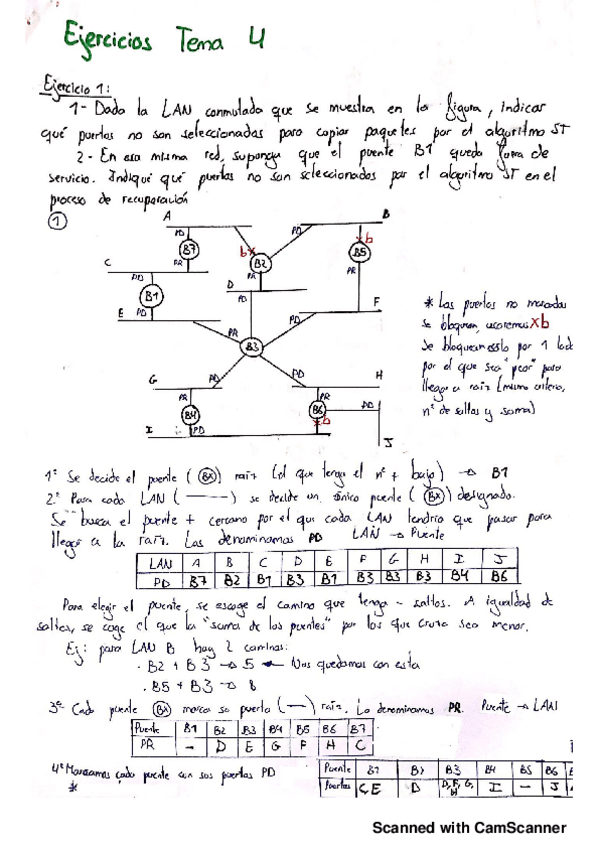 Ejercicios Tema 4
Ejercicio 1:
1- Dada la LAN conmutada que se muestra en la figura, indicar
qué puertos no son seleccionados para copiar paquetes por el algoritmo ST
2- En esa misma red, suponga que el puente B1 queda fuera de
servicio. Indique qué puertos no son seleccionados por el algoritmo ST en el
proceso de recuperación
1
A
B
PD
B7
PR
b x
PD
B2
PR
x b
B5
PR
C
PD
B1
PD
D
PD
E
F
PR
PD
B3
G
PD
PD
H
PR
B4
PD
PR
B6
x b
PD
I
J
* Los puertos no marcados
se bloquean, usaremos x b
Se bloquean solo por 1 lado
por el que sea "peor" para
llegar a raíz (mismo criterio,
nº de saltos y suma)
1º Se decide el puente (Bx) raíz (el que tenga el nº + bajo) → B1
2º Para cada LAN (—) se decide un único puente (Bx) designado.
Se busca el puente + cercano por el que cada LAN tendría que pasar para
llegar a la raíz. Las denominamos PD LAN → Puente
LAN A B C D E F G H I J
PD B7 B2 B1 B3 B1 B3 B3 B3 B4 B6
Para elegir el puente, se escoge el camino que tenga - saltos. A igualdad de
saltos, se coge el que la "suma de los puentes" por los que cruza sea menor.
Ej: para LAN B hay 2 caminos:
· B2 + B3 → 5 ← Nos quedamos con esta
· B5 + B3 → 8
3º Cada puente (Bx) marca su puerta (—) raíz. Lo denominamos PR. Puente → LAN
Puente B1 B2 B3 B4 B5 B6 B7
PR - D E G F H C
4º Marcamos cada puente con sus puertas PD
*
Puente B1 B2 B3 B4 B5 B6
Puertas C,E D D, F, G, H I - J
Scanned with CamScanner